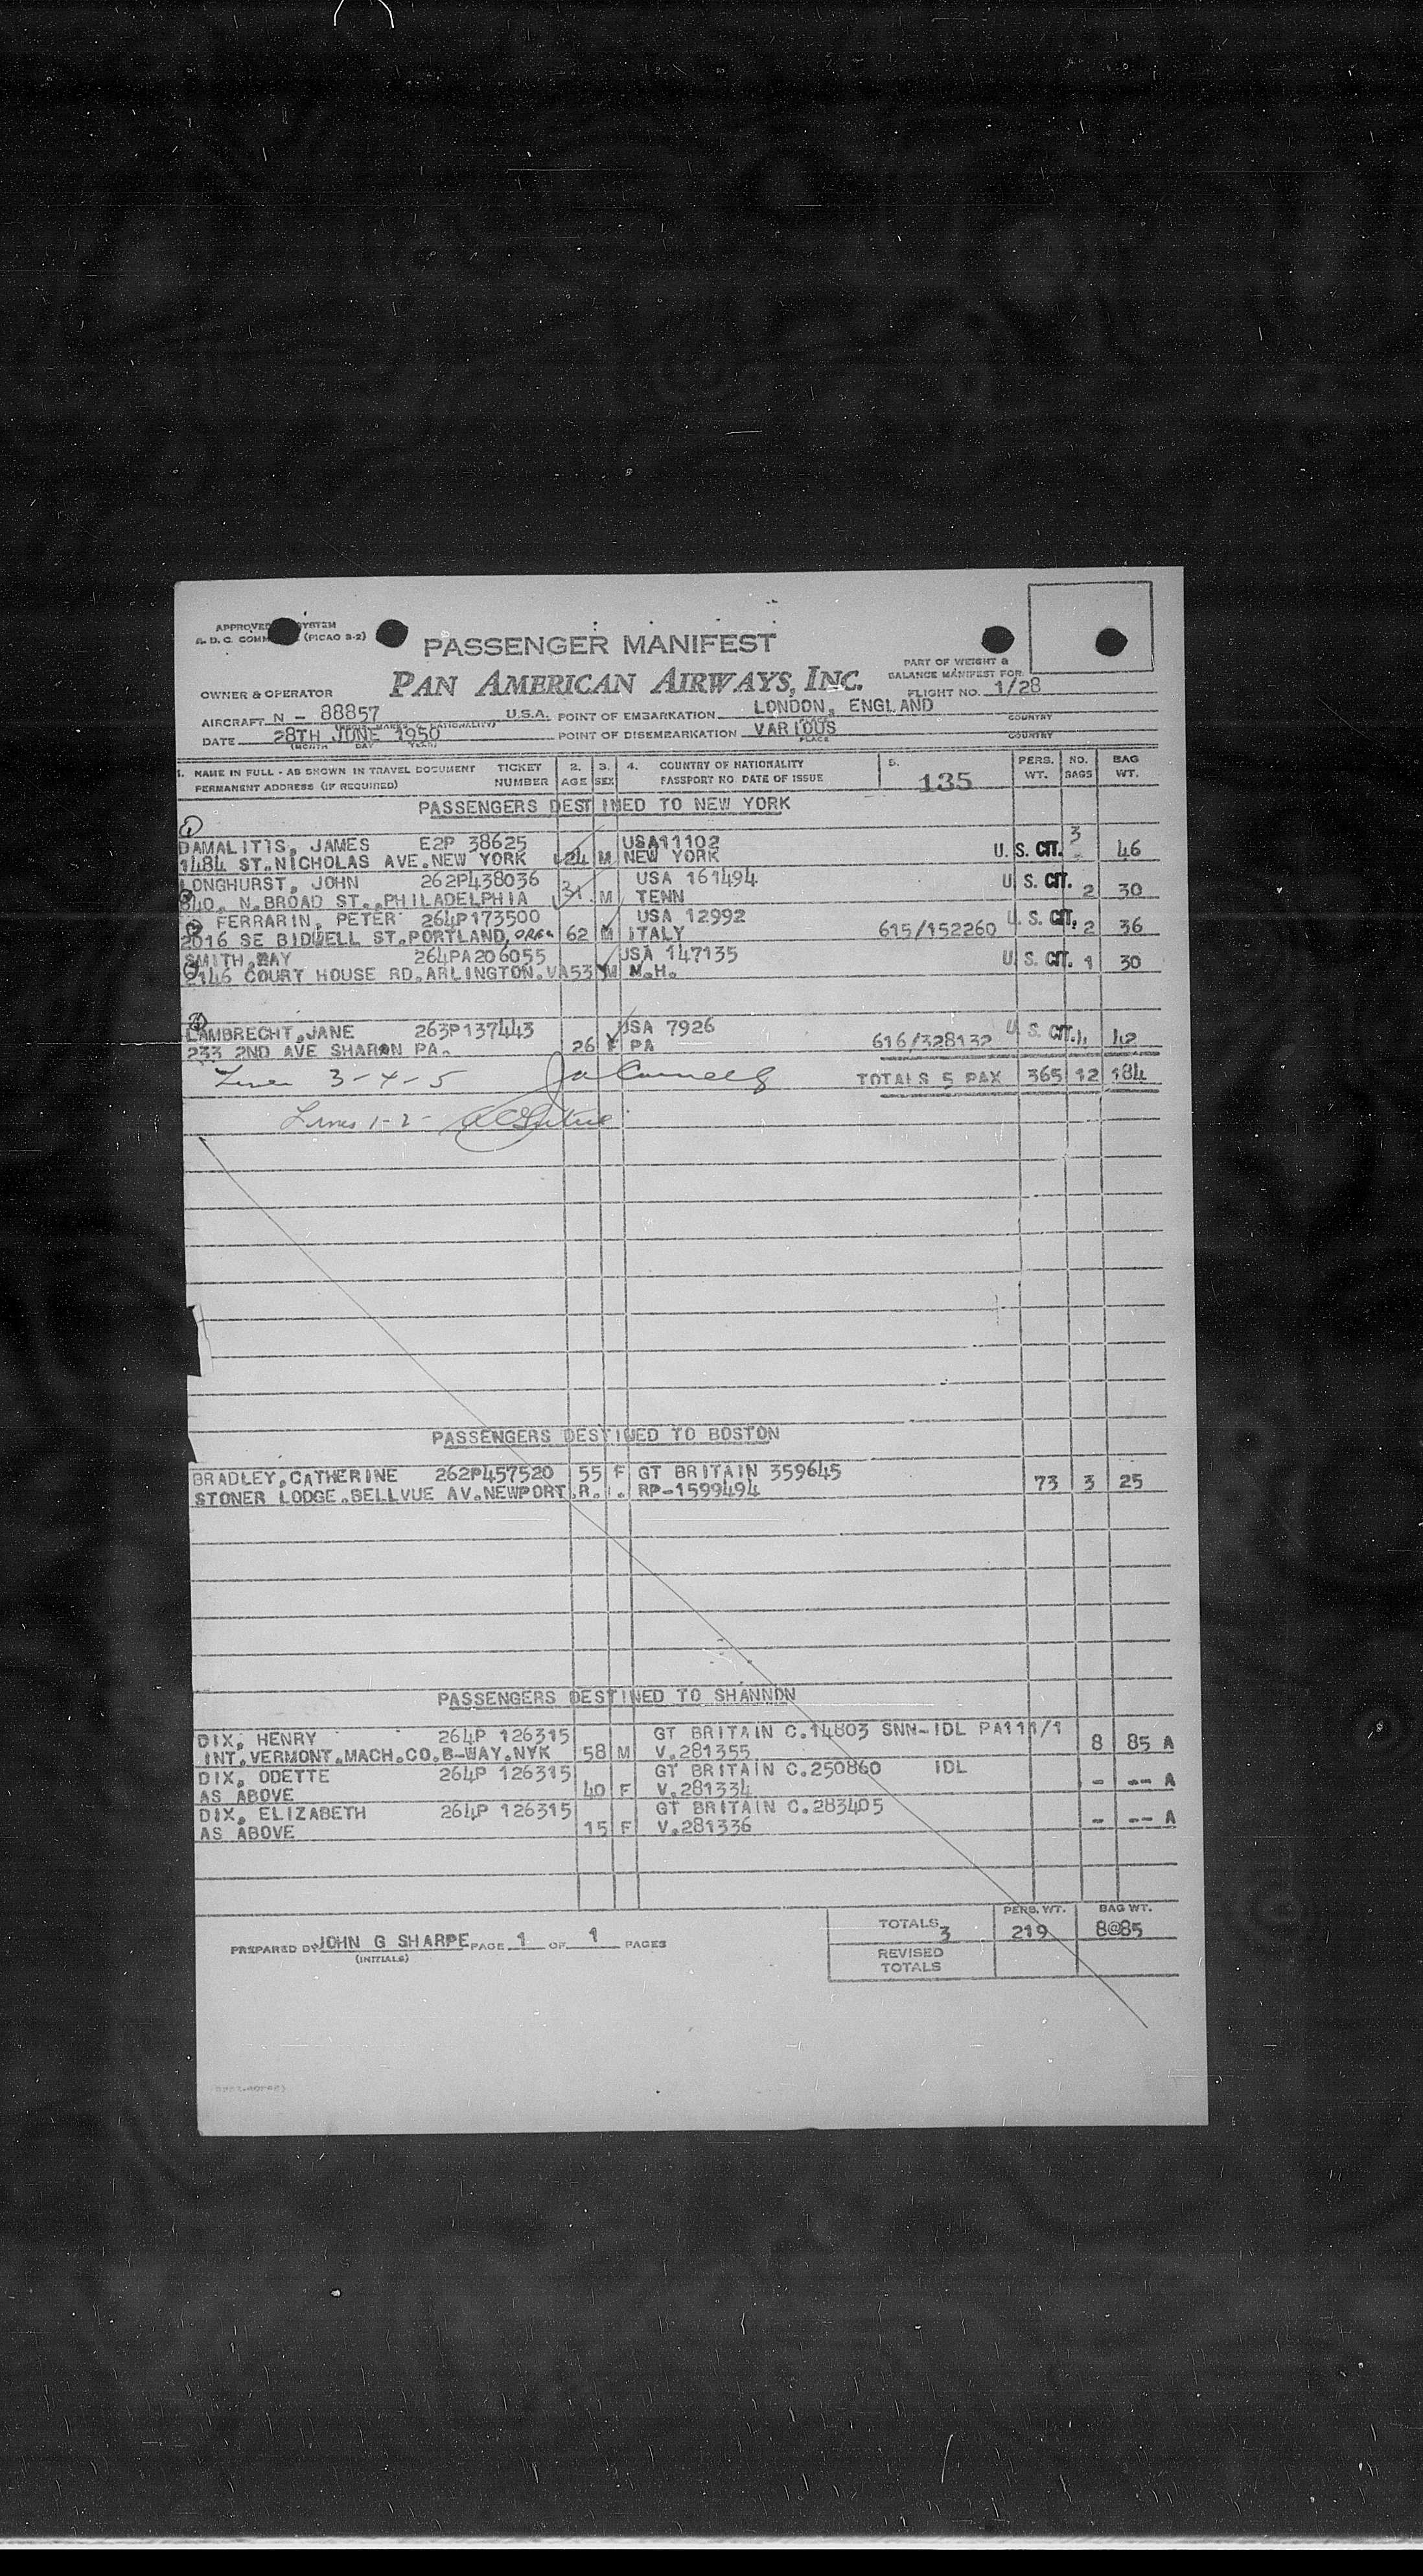 PASSENGER MANIFEST
PAN AMERICAN AIRWAYS, INC.
PART OF WEIGHT &
BALANCE MANIFEST FOR
FLIGHT NO. 1/28
OWNER & OPERATOR
AIRCRAFT N - 88857 U.S.A. POINT OF EMBARKATION LONDON, ENGLAND COUNTRY
DATE 28TH JUNE 1950 POINT OF DISEMBARKATION VARIOUS PLACE COUNTRY
(MONTH DAY YEAR)
1. NAME IN FULL - AS SHOWN IN TRAVEL DOCUMENT TICKET 2. 3. 4. COUNTRY OF NATIONALITY 5. PERS. NO. BAG
PERMANENT ADDRESS (IF REQUIRED) NUMBER AGE SEX PASSPORT NO. DATE OF ISSUE 135 WT. BAGS WT.
PASSENGERS DESTINED TO NEW YORK
DAMALITIS, JAMES E2P 38625 USA11102 3
1484 ST.NICHOLAS AVE.NEW YORK 24 M NEW YORK U.S. CIT. 46
LONGHURST, JOHN 262P438036 USA 161494 U.S. CIT.
840. N.BROAD ST..PHILADELPHIA 31 M TENN 2 30
FERRARIN, PETER 264P173500 USA 12992 U.S. CIT.
2016 SE BIDWELL ST.PORTLAND, OREG 62 M ITALY 615/152260 2 36
SMITH,RAY 264PA206055 USA 147135 U.S. CIT.
2146 COURT HOUSE RD.ARLINGTON.VA 53 M N.H. 1 30
LAMBRECHT,JANE 263P137443 USA 7926 U.S. CIT.
233 2ND AVE SHARON PA. 26 F PA 616/328132 4 42
3-4-5 TOTALS 5 PAX 365 12 184
Lines 1-2-
PASSENGERS DESTINED TO BOSTON
BRADLEY,CATHERINE 262P457520 55 F GT BRITAIN 359645
STONER LODGE.BELLVUE AV.NEWPORT.R.I. RP-1599494 73 3 25
PASSENGERS DESTINED TO SHANNON
DIX, HENRY 264P 126315 GT BRITAIN C.14803 SNN-IDL PA111/1
INT.VERMONT.MACH.CO.B-WAY.NYK 58 M V.281355 8 85 A
DIX, ODETTE 264P 126315 GT BRITAIN C.250860 IDL
AS ABOVE 40 F V.281334 - -- A
DIX, ELIZABETH 264P 126315 GT BRITAIN C.283405
AS ABOVE 15 F V.281336 - -- A
PERS. WT. BAG WT.
TOTALS 3 219 8@85
PREPARED BY JOHN G SHARPE PAGE 1 OF 1 PAGES
(INITIALS)
REVISED
TOTALS